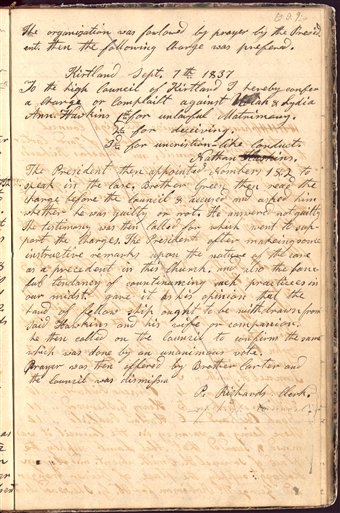 229.
The organization was followed by prayer by the Presid
ent. then the following charge was prefered.
Kirtland Sept. 7th 1837
To the high Council of Kirtland I hereby confer
a charge or complaint against Uriah & Lydia
Ann Hawkins 1st for unlawful Matrimony.
2d for deceiving.
3d for unchristian-like conduct.
Nathan Haskins.
The President then appointed Nombers 1 & 2 to
speak in the case. Brother Green then read the
charge before the Council & accused and asked him
whether he was guilty or not. He answered not guilty
The testimony was then called for which went to sup
port the charges. The President after making some
instructive remarks upon the nature of the case
as a precedent in this church, and also the bane
ful tendency of countenancing such practices in
our midst. gave it as his opinion that the
hand of fellowship ought to be withdrawn from
said Hawkins and his wife or companion.
he then called on the Council to confirm the same
which was done by an unanimous vote.
Prayer was then offered by Brother Carter and
the Council was dismissed
P. Richards Clerk.